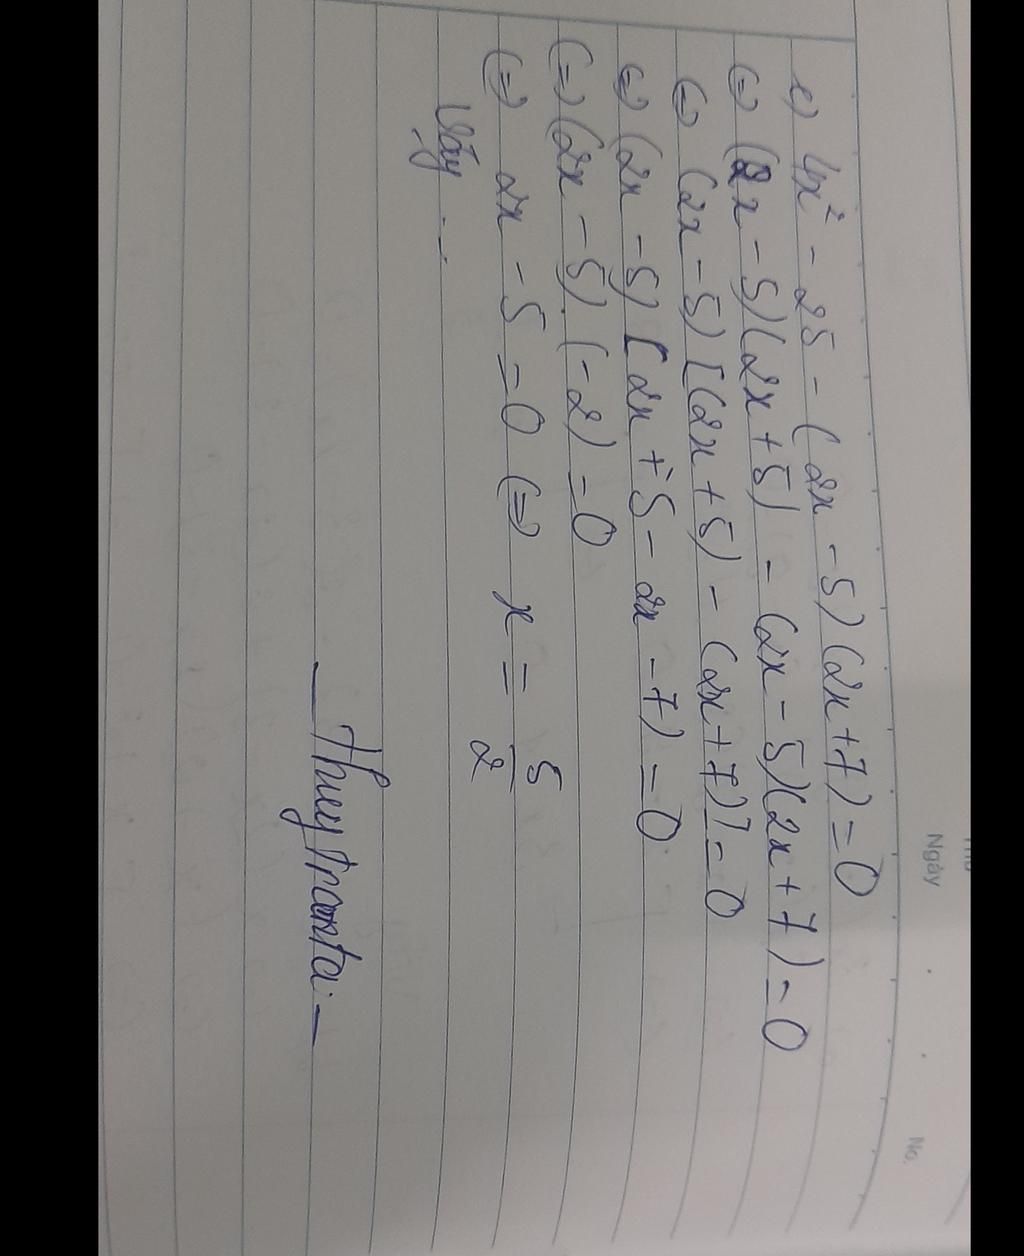 Ngày
No.
c) 4x² - 25 - (2x - 5)(2x + 7) = 0
(=) (2x - 5)(2x + 5) - (2x - 5)(2x + 7) = 0
(=) (2x - 5)[(2x + 5) - (2x + 7)] = 0
(=) (2x - 5)[2x + 5 - 2x - 7) = 0
(=) (2x - 5).(-2) = 0
(=) 2x - 5 = 0 (=) x = 5/2
Vậy ...